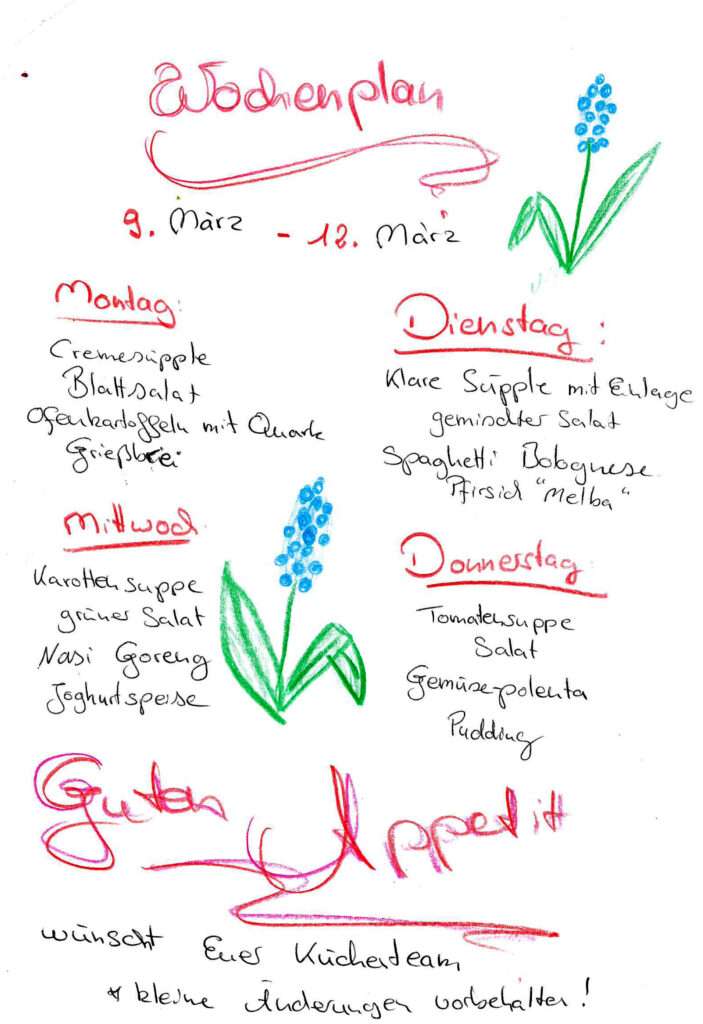 Wochenplan
9. März - 12. März
Montag:
Cremesüpple
Blattsalat
Ofenkartoffeln mit Quark
Grießbrei
Dienstag:
Klare Süpple mit Einlage
gemischter Salat
Spaghetti Bolognese
Pfirsich "Melba"
Mittwoch
Karottensuppe
grüner Salat
Nasi Goreng
Joghurtspeise
Donnerstag
Tomatensuppe
Salat
Gemüsepolenta
Pudding
Guten Appetit
wünscht Euer Küchenteam
* kleine Änderungen vorbehalten!